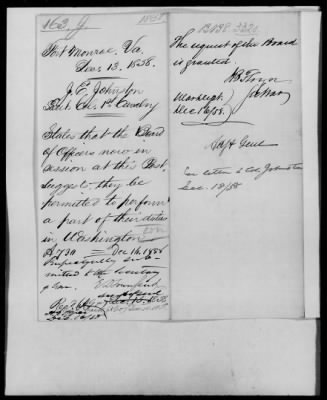 163. J. 1858
Fort Monroe, Va.
Dec. 13. 1858.
J. E. Johnston
Lt. Col. 1st Cavalry
States that the Board
of Officers now in
session at this Post,
suggests, they be
permitted to perform
a part of their duties
in Washington
Dec 14. 1858
Respectfully sub-
mitted to the Secretary
of War.
E D Townsend
The request of the Board
is granted.
War Dept.
Dec 16/58.
Adjt Genl
See letter to Col Johnston
Dec. 18/58